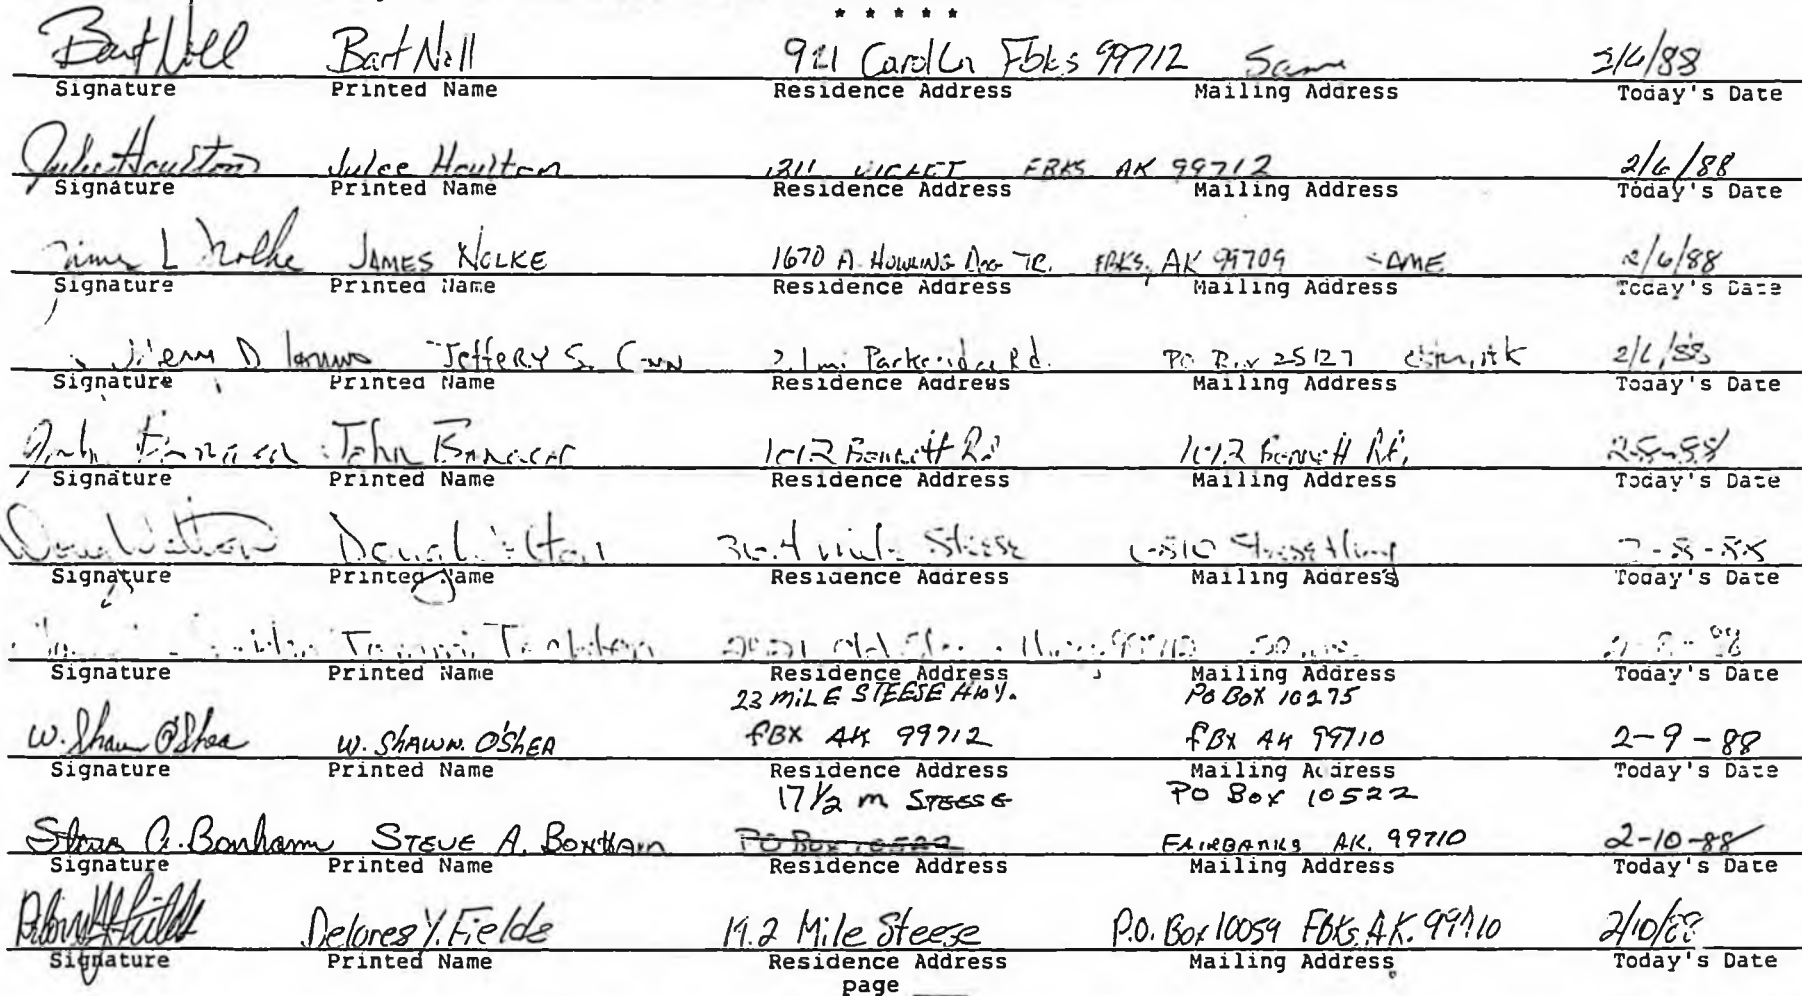 * * * * *
Bart Nill Bart Nill 921 Carol Ln Fbks 99712 Same 2/6/88
Signature Printed Name Residence Address Mailing Address Today's Date
Julie Houlton Julee Houlton FBKS AK 99712 2/6/88
Signature Printed Name Residence Address Mailing Address Today's Date
L Nolke JAMES NOLKE 1670 A. HOWLING DOG TR. FBKS, AK 99709 SAME 2/6/88
Signature Printed Name Residence Address Mailing Address Today's Date
JeffeRY S. 2.1 mi Parkridge Rd. PO Box 25127 2/6/88
Signature Printed Name Residence Address Mailing Address Today's Date
John John 1012 Bennett Rd 1012 Bennett Rd. 2-8-88
Signature Printed Name Residence Address Mailing Address Today's Date
Steese Steese Hwy 2-8-88
Signature Printed Name Residence Address Mailing Address Today's Date
Tammi old 99712
Signature Printed Name Residence Address Mailing Address Today's Date
23 MiLE STEESE HWY. PO BOX 10275
W. Shawn O'Shea W. SHAWN. O'SHEA FBX AK 99712 FBX AK 99710 2-9-88
Signature Printed Name Residence Address Mailing Address Today's Date
17 1/2 m STEESE PO Box 10522
Steve A. Bonham STEVE A. BONHAM PO Box 10522 FAIRBANKS AK. 99710 2-10-88
Signature Printed Name Residence Address Mailing Address Today's Date
Delores Y. Fields 19.2 Mile Steese P.O. Box 10059 Fbks. AK. 99710 2/10/88
Signature Printed Name Residence Address Mailing Address Today's Date
page